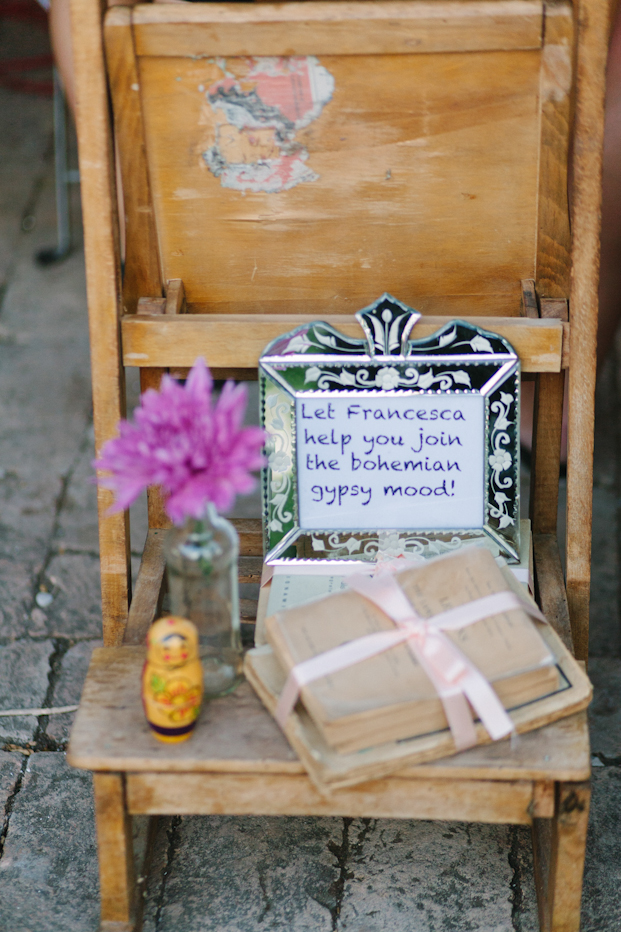 Let Francesca
help you join
the bohemian
gypsy mood!